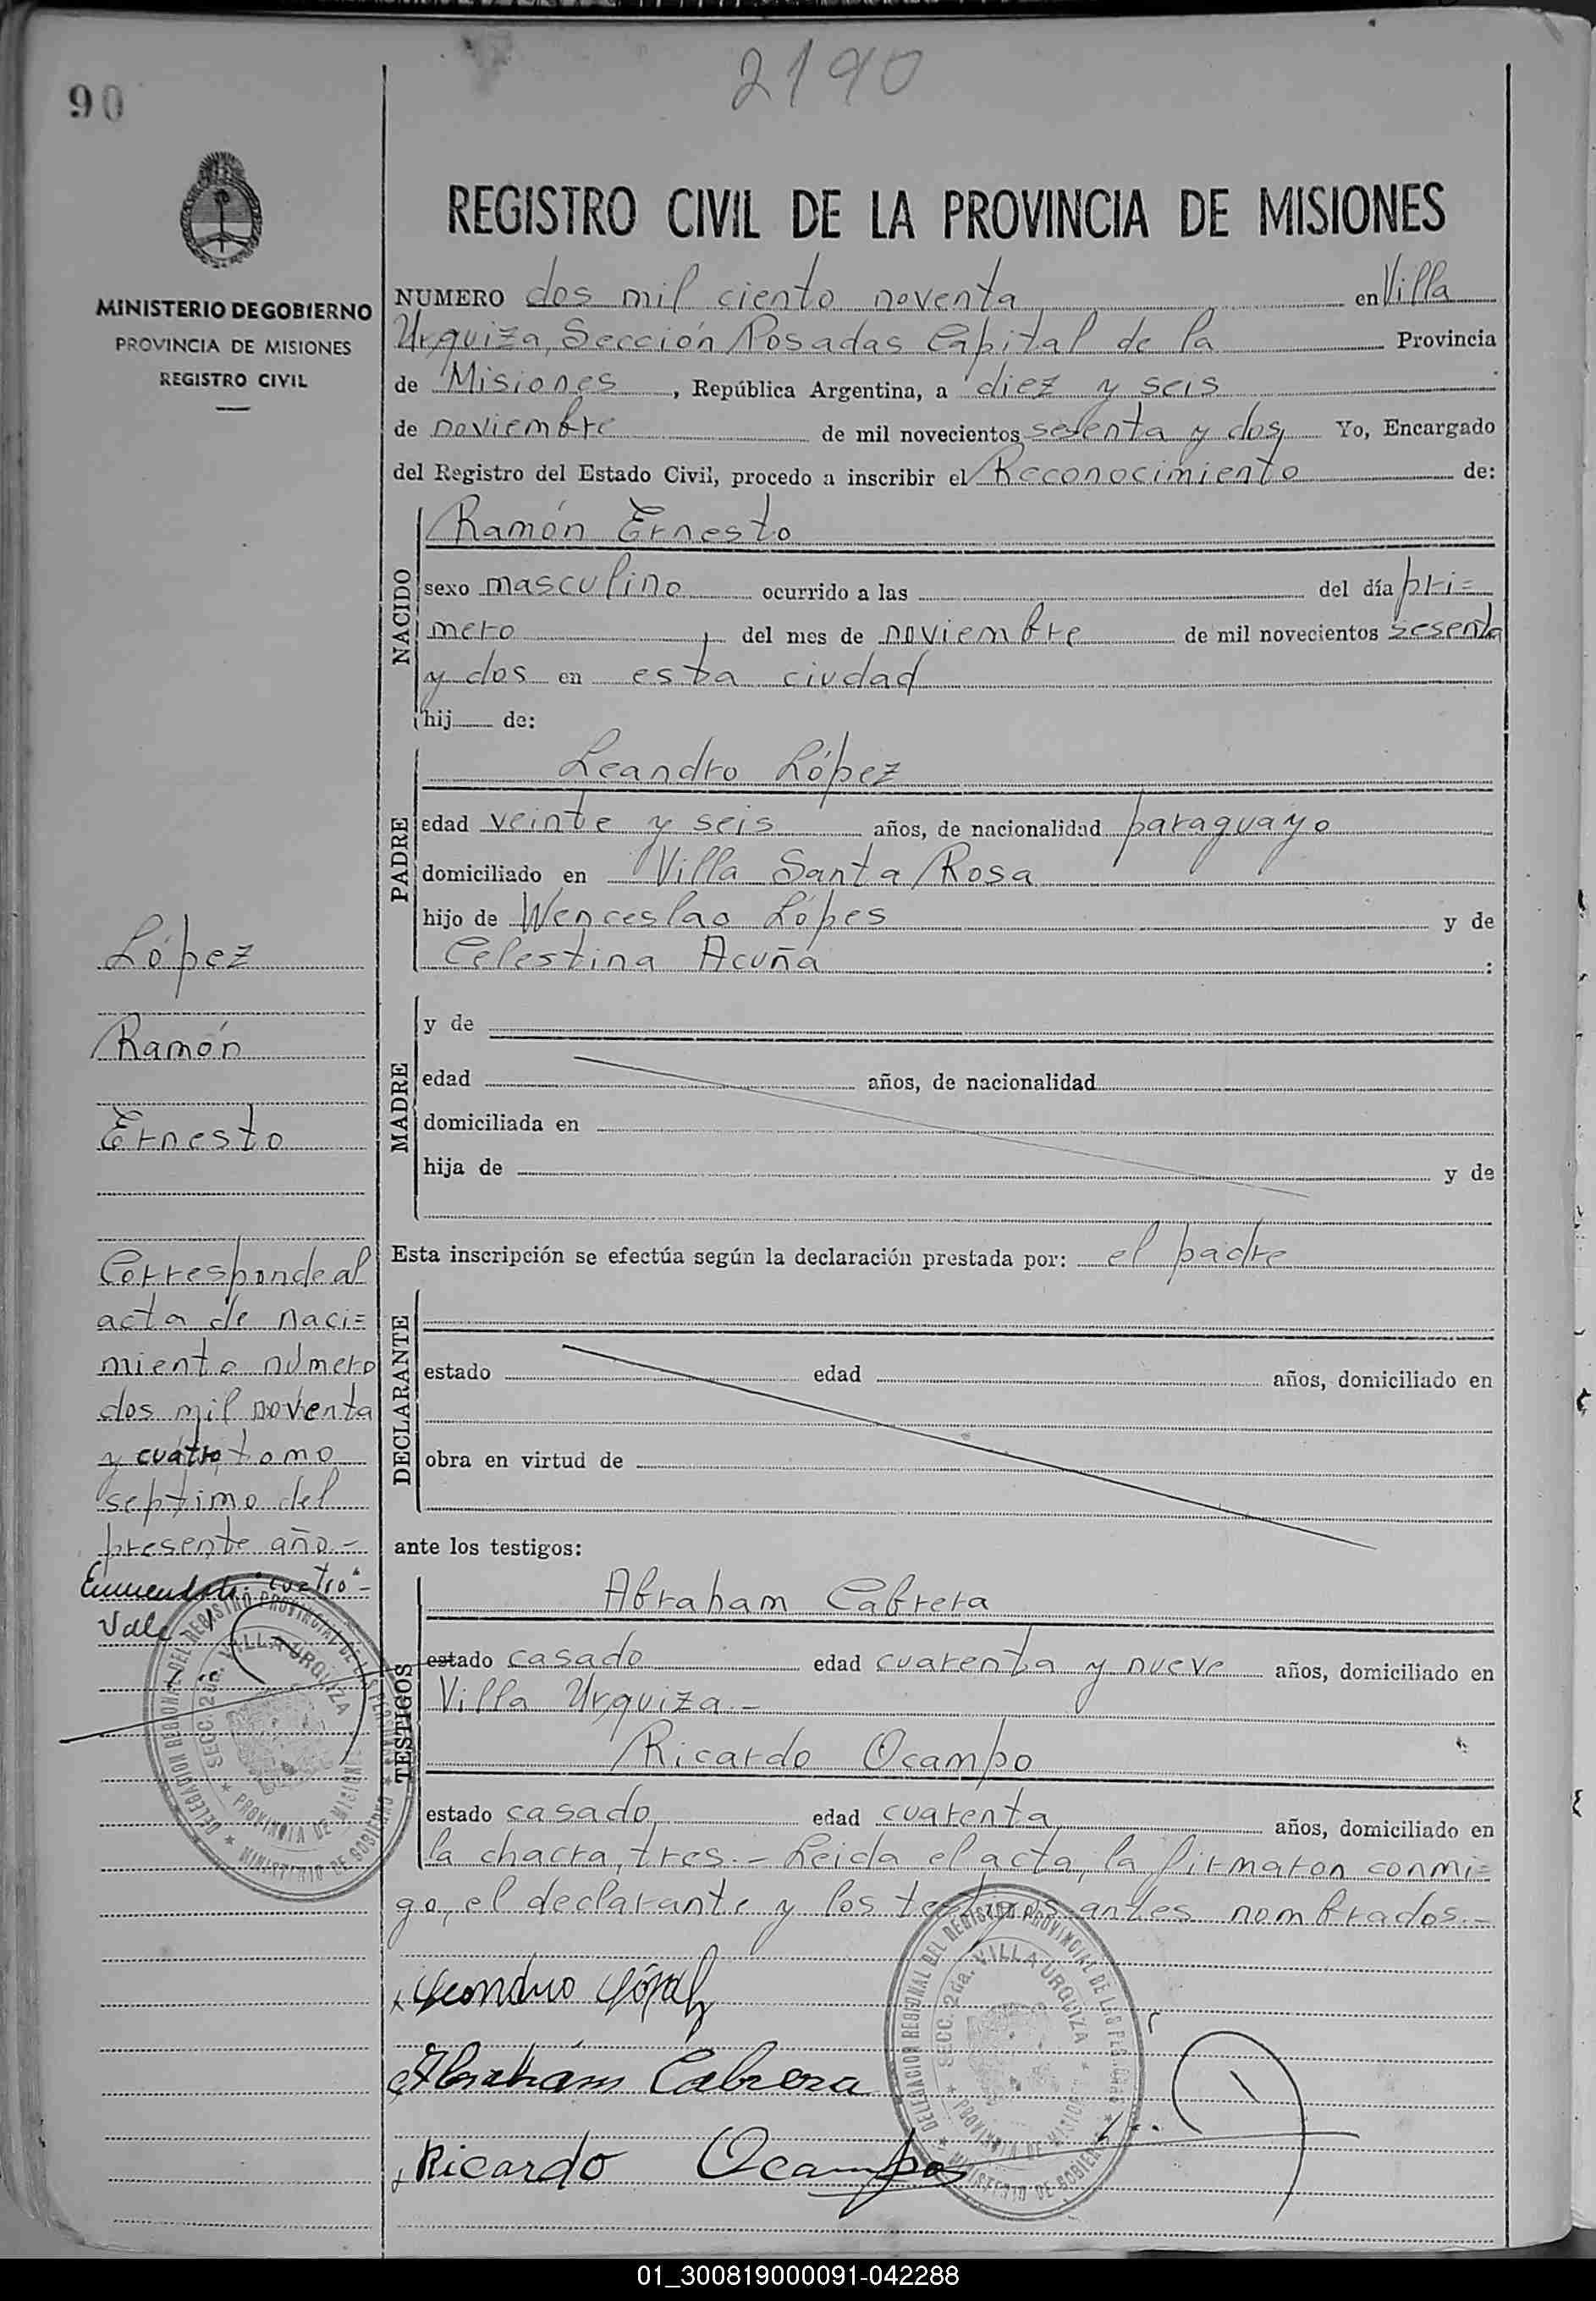 90
2190
REGISTRO CIVIL DE LA PROVINCIA DE MISIONES
MINISTERIO DE GOBIERNO
PROVINCIA DE MISIONES
REGISTRO CIVIL
NUMERO dos mil ciento noventa en Villa
Urquiza, Sección Posadas Capital de la Provincia
de Misiones, República Argentina, a diez y seis
de noviembre de mil novecientos sesenta y dos, Yo, Encargado
del Registro del Estado Civil, procedo a inscribir el Reconocimiento de:
NACIDO
Ramón Ernesto
sexo masculino ocurrido a las del día pri=
mero del mes de noviembre de mil novecientos sesenta
y dos en esta ciudad
hij de:
PADRE
Leandro López
edad veinte y seis años, de nacionalidad paraguayo
domiciliado en Villa Santa Rosa
hijo de Wenceslao Lópes y de
Celestina Acuña :
MADRE
y de
edad años, de nacionalidad
domiciliada en
hija de y de
Esta inscripción se efectúa según la declaración prestada por: el padre
DECLARANTE
estado edad años, domiciliado en
obra en virtud de
ante los testigos:
TESTIGOS
Abraham Cabrera
estado casado edad cuarenta y nueve años, domiciliado en
Villa Urquiza.-
Ricardo Ocampo
estado casado, edad cuarenta, años, domiciliado en
la chacra, tres.- Leida el acta, la firmaron conmi=
go, el declarante y los testigos antes nombrados.-
López
Ramón
Ernesto
Corresponde al
acta de naci=
miento número
dos mil noventa
y cuatro, tomo
septimo del
presente año.-
Enmendado: "cuatro"-
Vale
DELEGACION REGIONAL DEL REGISTRO PROVINCIAL DE LAS PERSONAS
SECC. 2da. VILLA URQUIZA
PROVINCIA DE MISIONES
MINISTERIO DE GOBIERNO
Leandro López
Abrahám Cabrera
Ricardo Ocampos
DELEGACION REGIONAL DEL REGISTRO PROVINCIAL DE LAS PERSONAS
SECC. 2da. VILLA URQUIZA
PROVINCIA DE MISIONES
MINISTERIO DE GOBIERNO
01_300819000091-042288